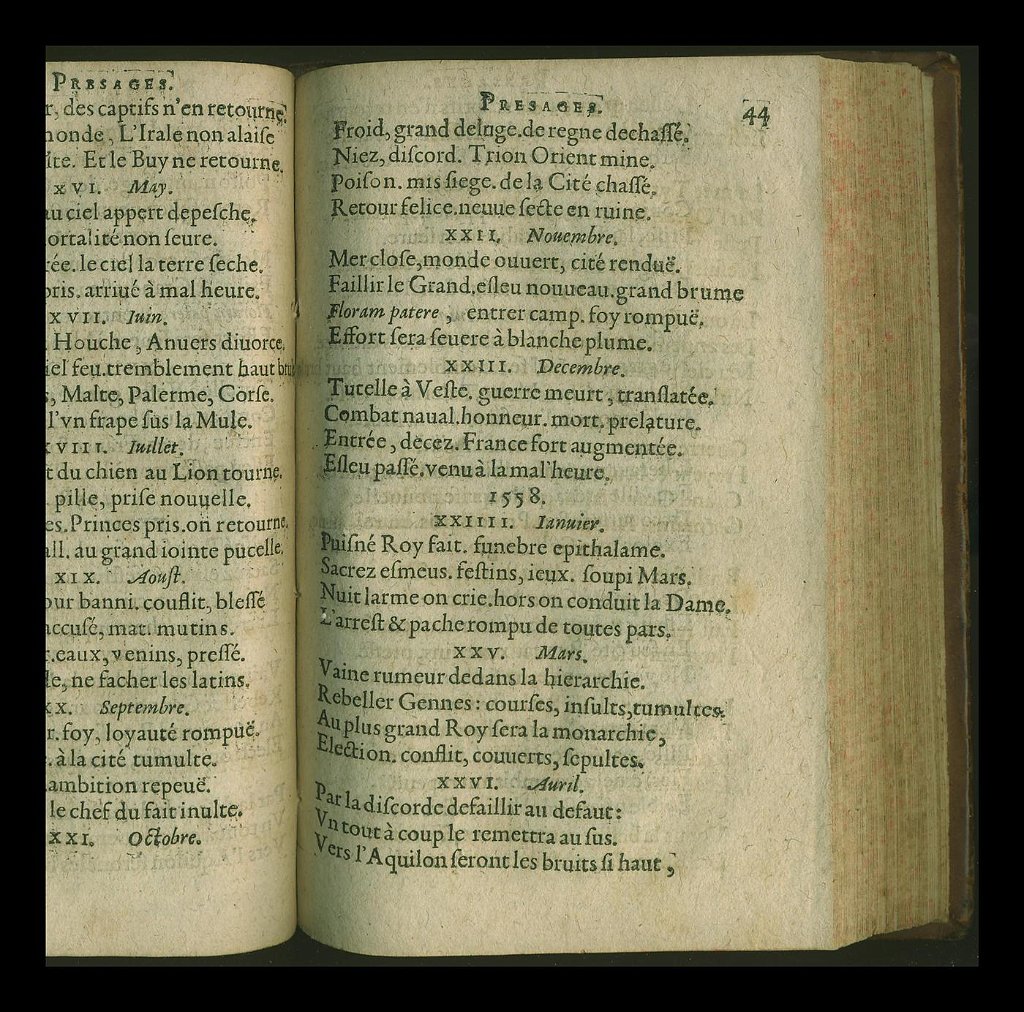 PRESAGES.
r, des captifs n'en retourne.
onde, L'Irale non alaiſe
ite. Et le Buy ne retourne.
XVI. May.
u ciel appert depeſche,
ortalité non ſeure.
ée. le ciel la terre ſeche.
ris. arriué à mal heure.
XVII. Iuin.
Houche, Anuers diuorce,
iel feu. tremblement haut
, Malte, Palerme, Corſe.
l'vn frape ſus la Mule.
VIII. Iuillet.
t du chien au Lion tourne.
pille, priſe nouuelle.
es. Princes pris. on retourne.
ll. au grand iointe pucelle.
XIX. Aouſt.
ur banni. couflit, bleſſé
ccuſé, mat. mutins.
. eaux, venins, preſſé.
e, ne facher les latins.
X. Septembre.
r. foy, loyauté rompuë.
. à la cité tumulte.
ambition repeuë.
le chef du fait inulte.
XXI. Octobre.
PRESAGES.
44
Froid, grand deluge. de regne dechaſſé.
Niez, diſcord. Trion Orient mine.
Poiſon. mis ſiege. de la Cité chaſſé.
Retour felice. neuue ſecte en ruine.
XXII. Nouembre.
Mer cloſe, monde ouuert, cité renduë.
Faillir le Grand. eſleu nouueau. grand brume
Floram patere, entrer camp. foy rompuë.
Effort ſera ſeuere à blanche plume.
XXIII. Decembre.
Tutelle à Veſte. guerre meurt, tranſlatée.
Combat naual. honneur. mort. prelature.
Entrée, decez. France fort augmentée.
Eſleu paſſé. venu à la mal'heure.
1558.
XXIIII. Ianuier.
Puiſné Roy fait. funebre epithalame.
Sacrez eſmeus. feſtins, ieux. ſoupi Mars.
Nuit larme on crie. hors on conduit la Dame.
L'arreſt & pache rompu de toutes pars.
XXV. Mars.
Vaine rumeur dedans la hierarchie.
Rebeller Gennes: courſes, inſults, tumultes.
Au plus grand Roy ſera la monarchie,
Election. conflit, couuerts, ſepultes.
XXVI. Auril.
Par la diſcorde defaillir au defaut:
Vn tout à coup le remettra au ſus.
Vers l'Aquilon ſeront les bruits ſi haut,